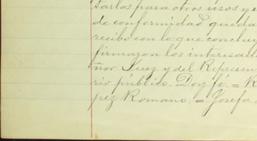 tarlos para otros usos y e
de conformidad quedan
recibo con lo que concluy
firmaron los interesad
ñor Juez y del Represen
rio público. Doy fé. = R
pez Romano. = Josefa